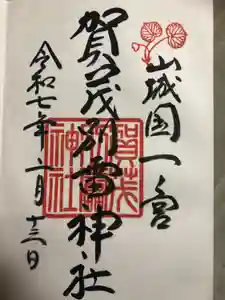 山城国一宮
賀茂別雷神社
令和七年 月十三日
賀茂
別雷
神社